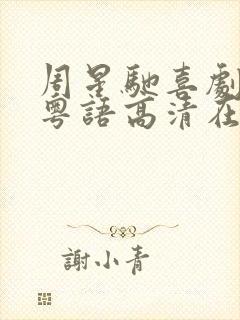 周星馳喜劇
粵語高清在
謝小青